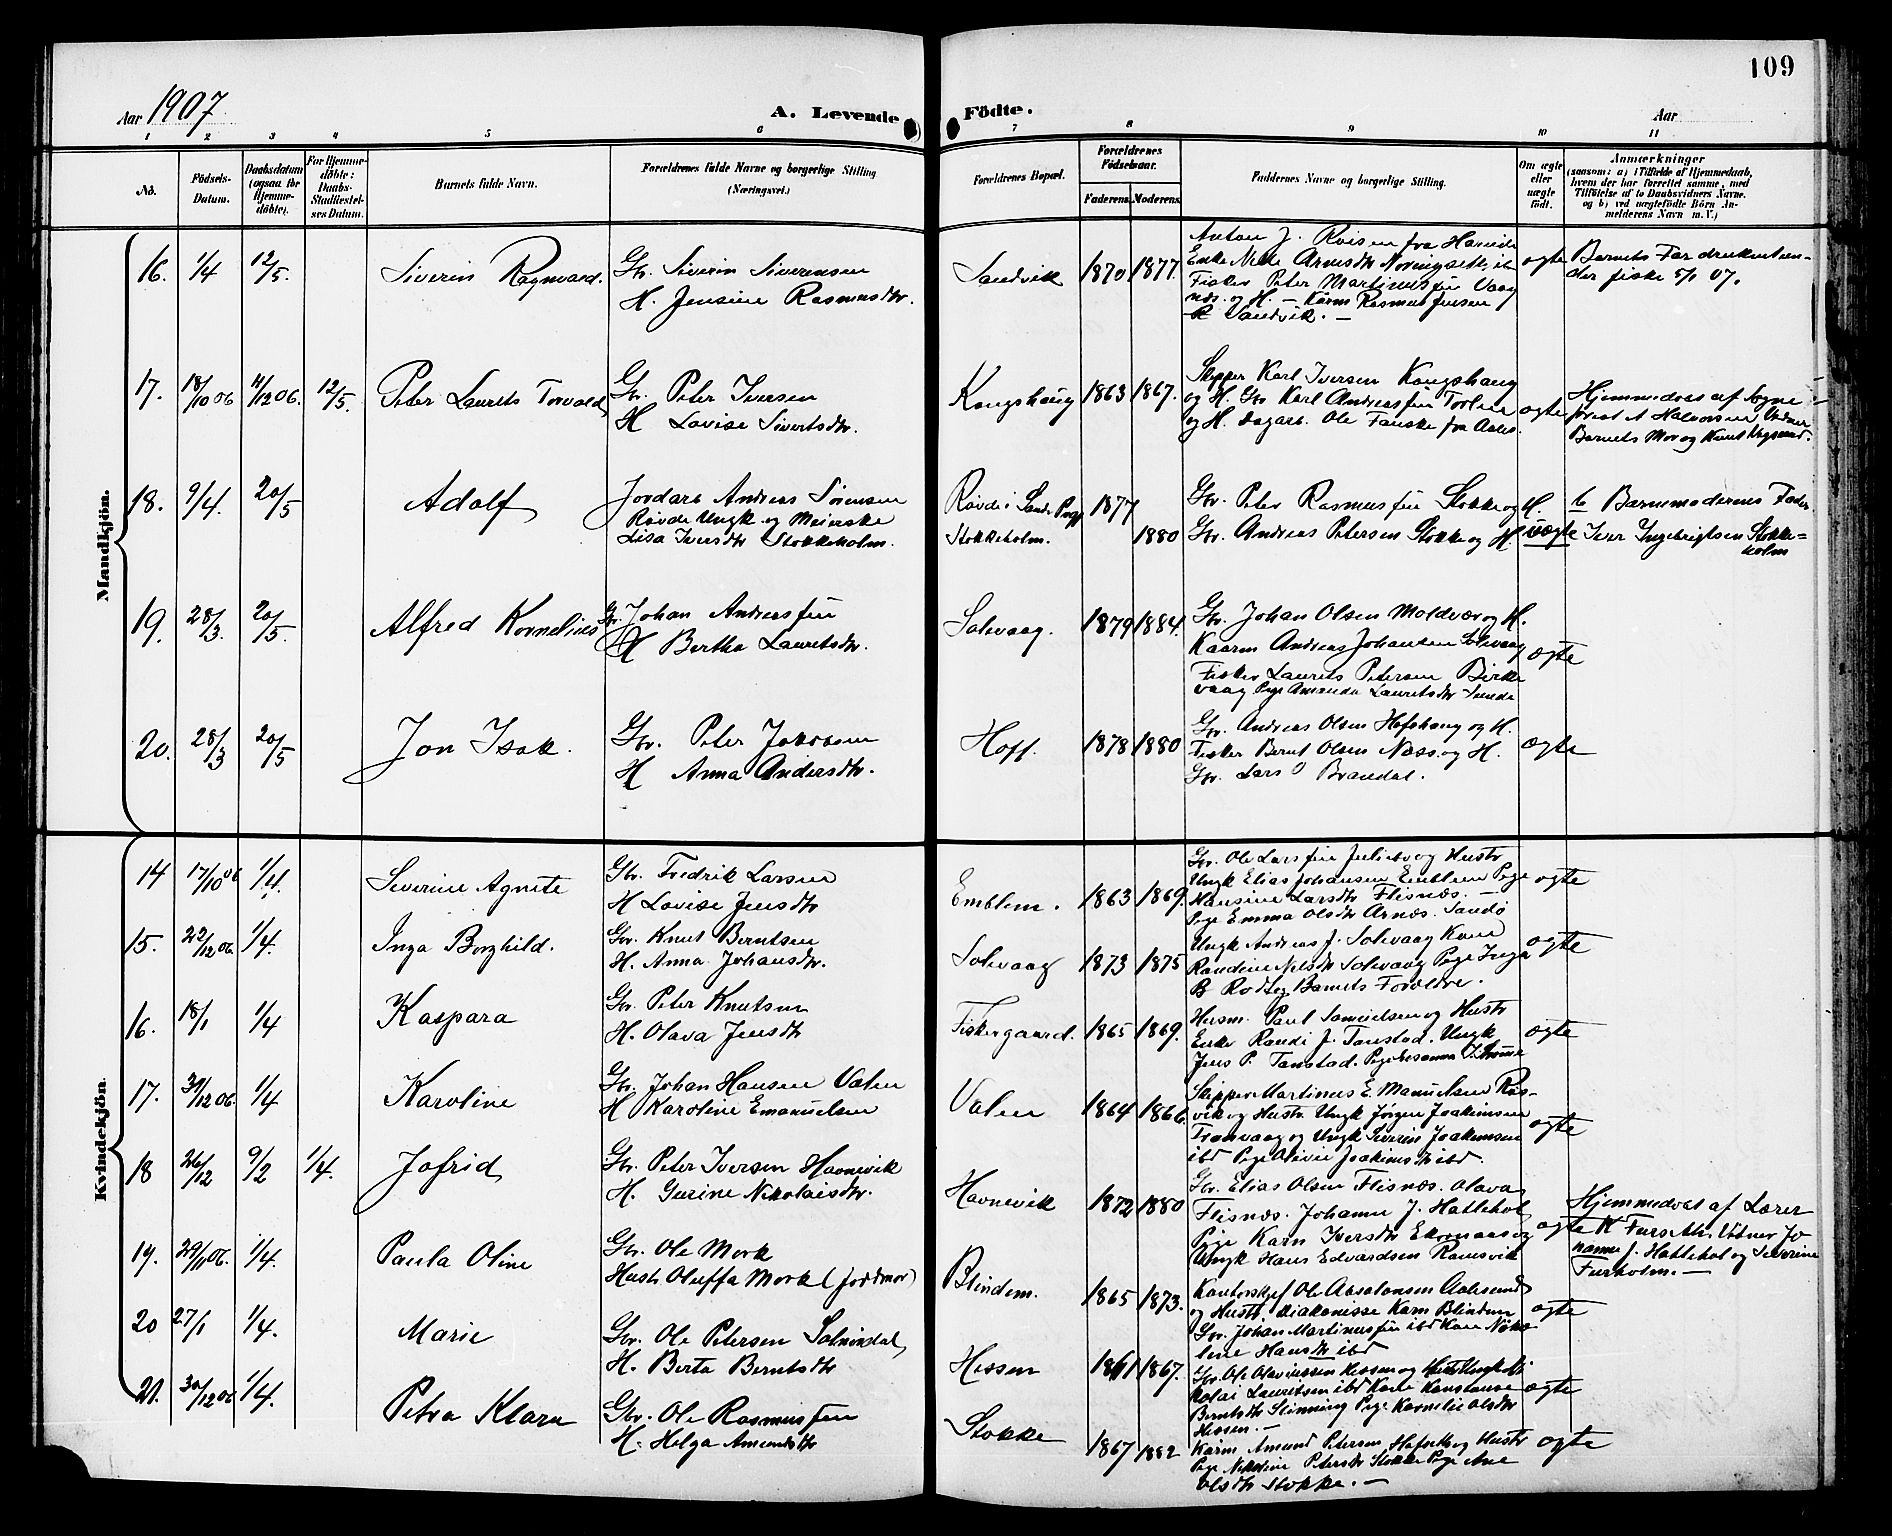 109
Aar 1907.
A. Levende Födte.
Aar
1 2 3 4 5 6 7 8 9 10 11
No.
Födsels-Datum.
Daabsdatum (ogsaa for Hjemme-döbte).
For Hjemme-döbte: Daabs-Stadfæstel-ses Datum.
Barnets fulde Navn.
Forældrenes fulde Navne og borgerlige Stilling (Næringsvei.)
Forældrenes Bopæl.
Forældrenes Födselsaar.
Faderens. Moderens.
Faddernes Navne og borgerlige Stilling.
Om ægte eller uægte födt.
Anmærkninger
(saasom: a) i Tilfælde af Hjemmedaab, hvem der har forrettet samme, med Tilföielse af to Daabsvidners Navne, og b) ved uægtefödte Börn An-melderens Navn m. V.)
Mandkjön.
16. 1/4 12/5. Siverin Ragnvard. Gbr. Siverin Siverensen
H. Jensine Rasmusdtr.
Sandvik 1870 1877.
Anton J. Roisen fra Hareide
Enke Arnesdtr
Fisker Peter Martinussen Vaag
næs. og H. – Kårm Rasmus Jensen
Sandvik. –
ægte
Barnets Far druknet un-
der fiske 5/1 07.
17. 18/10 06 11/12 06. 12/5. Peter Laurits Torvald Gbr. Peter Iversen
H Lovise Sivertsdtr.
Kongshaug 1863 1867.
Skipper Karl Iversen Kongshaug
og H. Gbr Karl Andreassen
og H. Dagarb. Ole Fauske fra Aales.
ægte
Hjemmedøbt af Sogne
prest A Halvorsen, Vidner
Barnets Mor og Knut
18. 9/4. 20/5 Adolf Jordarb Andreas Sørensen
Røvde Ungk og Meierske
Lisa Iversdtr Stokkeholm.
Røvde i Sande Pregj
Stokkeholm.
1877
1880
Gbr. Peter Rasmussen Stokke og H.
Gbr. Andreas Petersen Stokke og H
uægte
b Barnemoderens Fader
Iver Ingebrigtsen Stokke=
holm
19. 28/3. 20/5. Alfred Kornelius Gbr. Johan Andreassen
H Bertha Lauritsdtr.
Solevaag. 1879 1884.
Gbr. Johan Olsen Moldvær og H.
Kaarm Andreas Johansen Solevaag
Fisker Laurits Petersen Birke
vaag Pige Amanda Lauritsdtr Sunde
ægte
20. 28/3 20/5 Jon Isak. Gbr. Peter Jakobsen
H Anna Andersdtr.
Hoff. 1878 1880
Gbr. Andreas Olsen Hofshaug og H.
Fisker Bernt Olsen Næss og H.
Gbr. Lars O Brandal.
ægte
Kvindekjön.
14 17/10 06 1/4. Severine Agnete Gbr. Fredrik Larsen
H Lovise Jensdtr
Emblem. 1863 1869.
Gbr. Ole Larssen og Hustr
Ungk Elias Johansen Emblem Pige
Hansine Larsdtr Flisnæs. –
Pige Emma Olsdtr Arnæs. Sandø
ægte
15. 22/12 06. 1/4. Inga Borghild. Gbr. Knut Berntsen
H. Anna Johansdtr.
Solevaag 1873 1875
Ungk Andreas J. Solevaag Kone
Randine Nelsdtr Solevaag Pige Inga
B Rodt og Barnets Forældre.
ægte
16. 18/1 1/4 Kaspara Gbr. Peter Knutsen
H. Olava Jensdtr
Fiskergaard. 1865 1869.
Husm. Paul Samuelsen og Hustr
Enke Randi J. Tanstad. Ungk
Jens P. Tanstad. Pige Susanna
ægte
17. 31/12 06. 1/4 Karoline Gbr. Johan Hansen Valen
H Karoline Emanuelsen
Valen 1864 1866.
Skipper Martinus E. Manuelsen Ras-
vik og Hustr Ungk Jørgen Joakimsen
Tranvaag og Ungk Severin Joakimsen
ibd Pige Olivie Joakimsdtr ibd.
ægte
18 26/12 9/2 1/4. Jofrid Gbr. Peter Iversen Havnevik
H. Gurine Nikolaisdtr.
Havnevik 1872 1880
Gbr. Elias Olsen Flisnæs. Olava
Flisnæs. Johanne J. Hatlehol
Pige Karn Iversdtr Ekornaas og
Ungk Hans Edvardsen Ramsvik
ægte
Hjemmedøbt af Lærer
K Furseth. Vidner Jo
hanne J. Hatlehol og Severine
Furholm. –
19. 29/11 06. 1/4. Paula Oline Gbr. Ole Mork
Hustr Oluffa Mork (jordmor)
Blindem. 1865 1873.
Kontorchef Ole Absalonsen Aalesund
og Hustr Diakonisse Karn Blindem
Gbr. Johan Martinussen ibd Kone Niko
line Hansdtr ibd
ægte
20 27/1 1/4. Marie Gbr. Ole Petersen
H. Berta Berntsdtr
Hessen 1861 1867.
Gbr. Ole Olavessen Hessen og Hustr Ungk Ni
kolai Lauritsen ibd Kone Konstanse
Berntsdtr Slinning Pige Kornelie Olsdtr
Hessen. –
ægte
21. 30/12 06 1/4. Petra Klara Gbr. Ole Rasmussen
H. Helga Amundsdtr
Stokke 1867 1882
Kårm Amund Petersen og Hustr
Pige Nikoline Petersdtr Stokke Pige Ane
Olsdtr Stokke. –
ægte